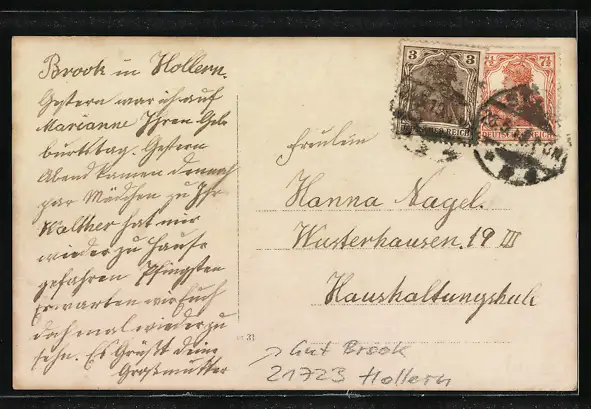 Brook in Hollern.
Gestern war ich auf
Marianne Ihren Geb
burtstag. Gestern
Abend kamen
par Mädchen zu Ihr
Walther hat mir
wieder zu Hause
gefahren Pfingsten
erwarten wir Euch
doch mal wieder zu
sehn. Es Grüßt deine
Großmutter
3 3
DEUTSCHES REICH
7½ 7½
DEUTSCHES REICH
Fräulein
Hanna Nagel.
Wusterhausen. 19 III
Haushaltungschule
31
Gut Brook
21723 Hollern